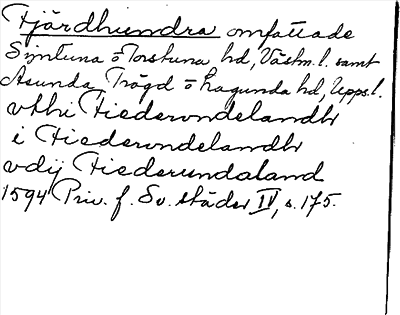 Fjärdhundra omfattade
Simtuna o Torstuna hd, Västm. l. samt
Asunda, Trögd o Lagunda hd, Upps. l.
vthi Fiederondelandh
i Fiederondelandh
vdij Fiederundaland
1594 Priv. f. Sv. städer IV, s. 175.